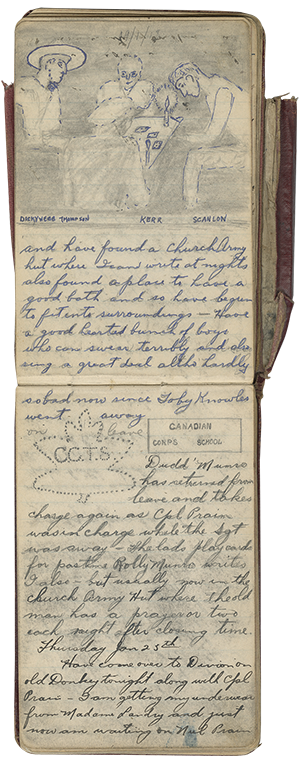 DICKYWEBB THOMPSON KERR SCANLON
and have found a Church Army
hut where I can write at nights
also found a place to have a
good bath and so have begun
to fit into surroundings – Have
a good hearted bunch of boys
who can swear terribly and also
sing a great deal altho hardly
so bad now since Toby Knowles
went away
on leave
C.C.T.S
25
CANADIAN
CORPS SCHOOL
"Dudd" Munro
has returned from
leave and takes
charge again as Cpl Prain
was in charge while the Sgt
was away – The lads play cards
for pastime Rolly Munro writes
I also – but usually now in the
Church Army Hut where the old
man has a prayer or two
each night after closing time.
Thursday Jan 25th
Have come over to Divion on
old Donkey tonight along with Cpl
Prain – I am getting my underwear
from Madame Landry and just
now am waiting on Neil Prain